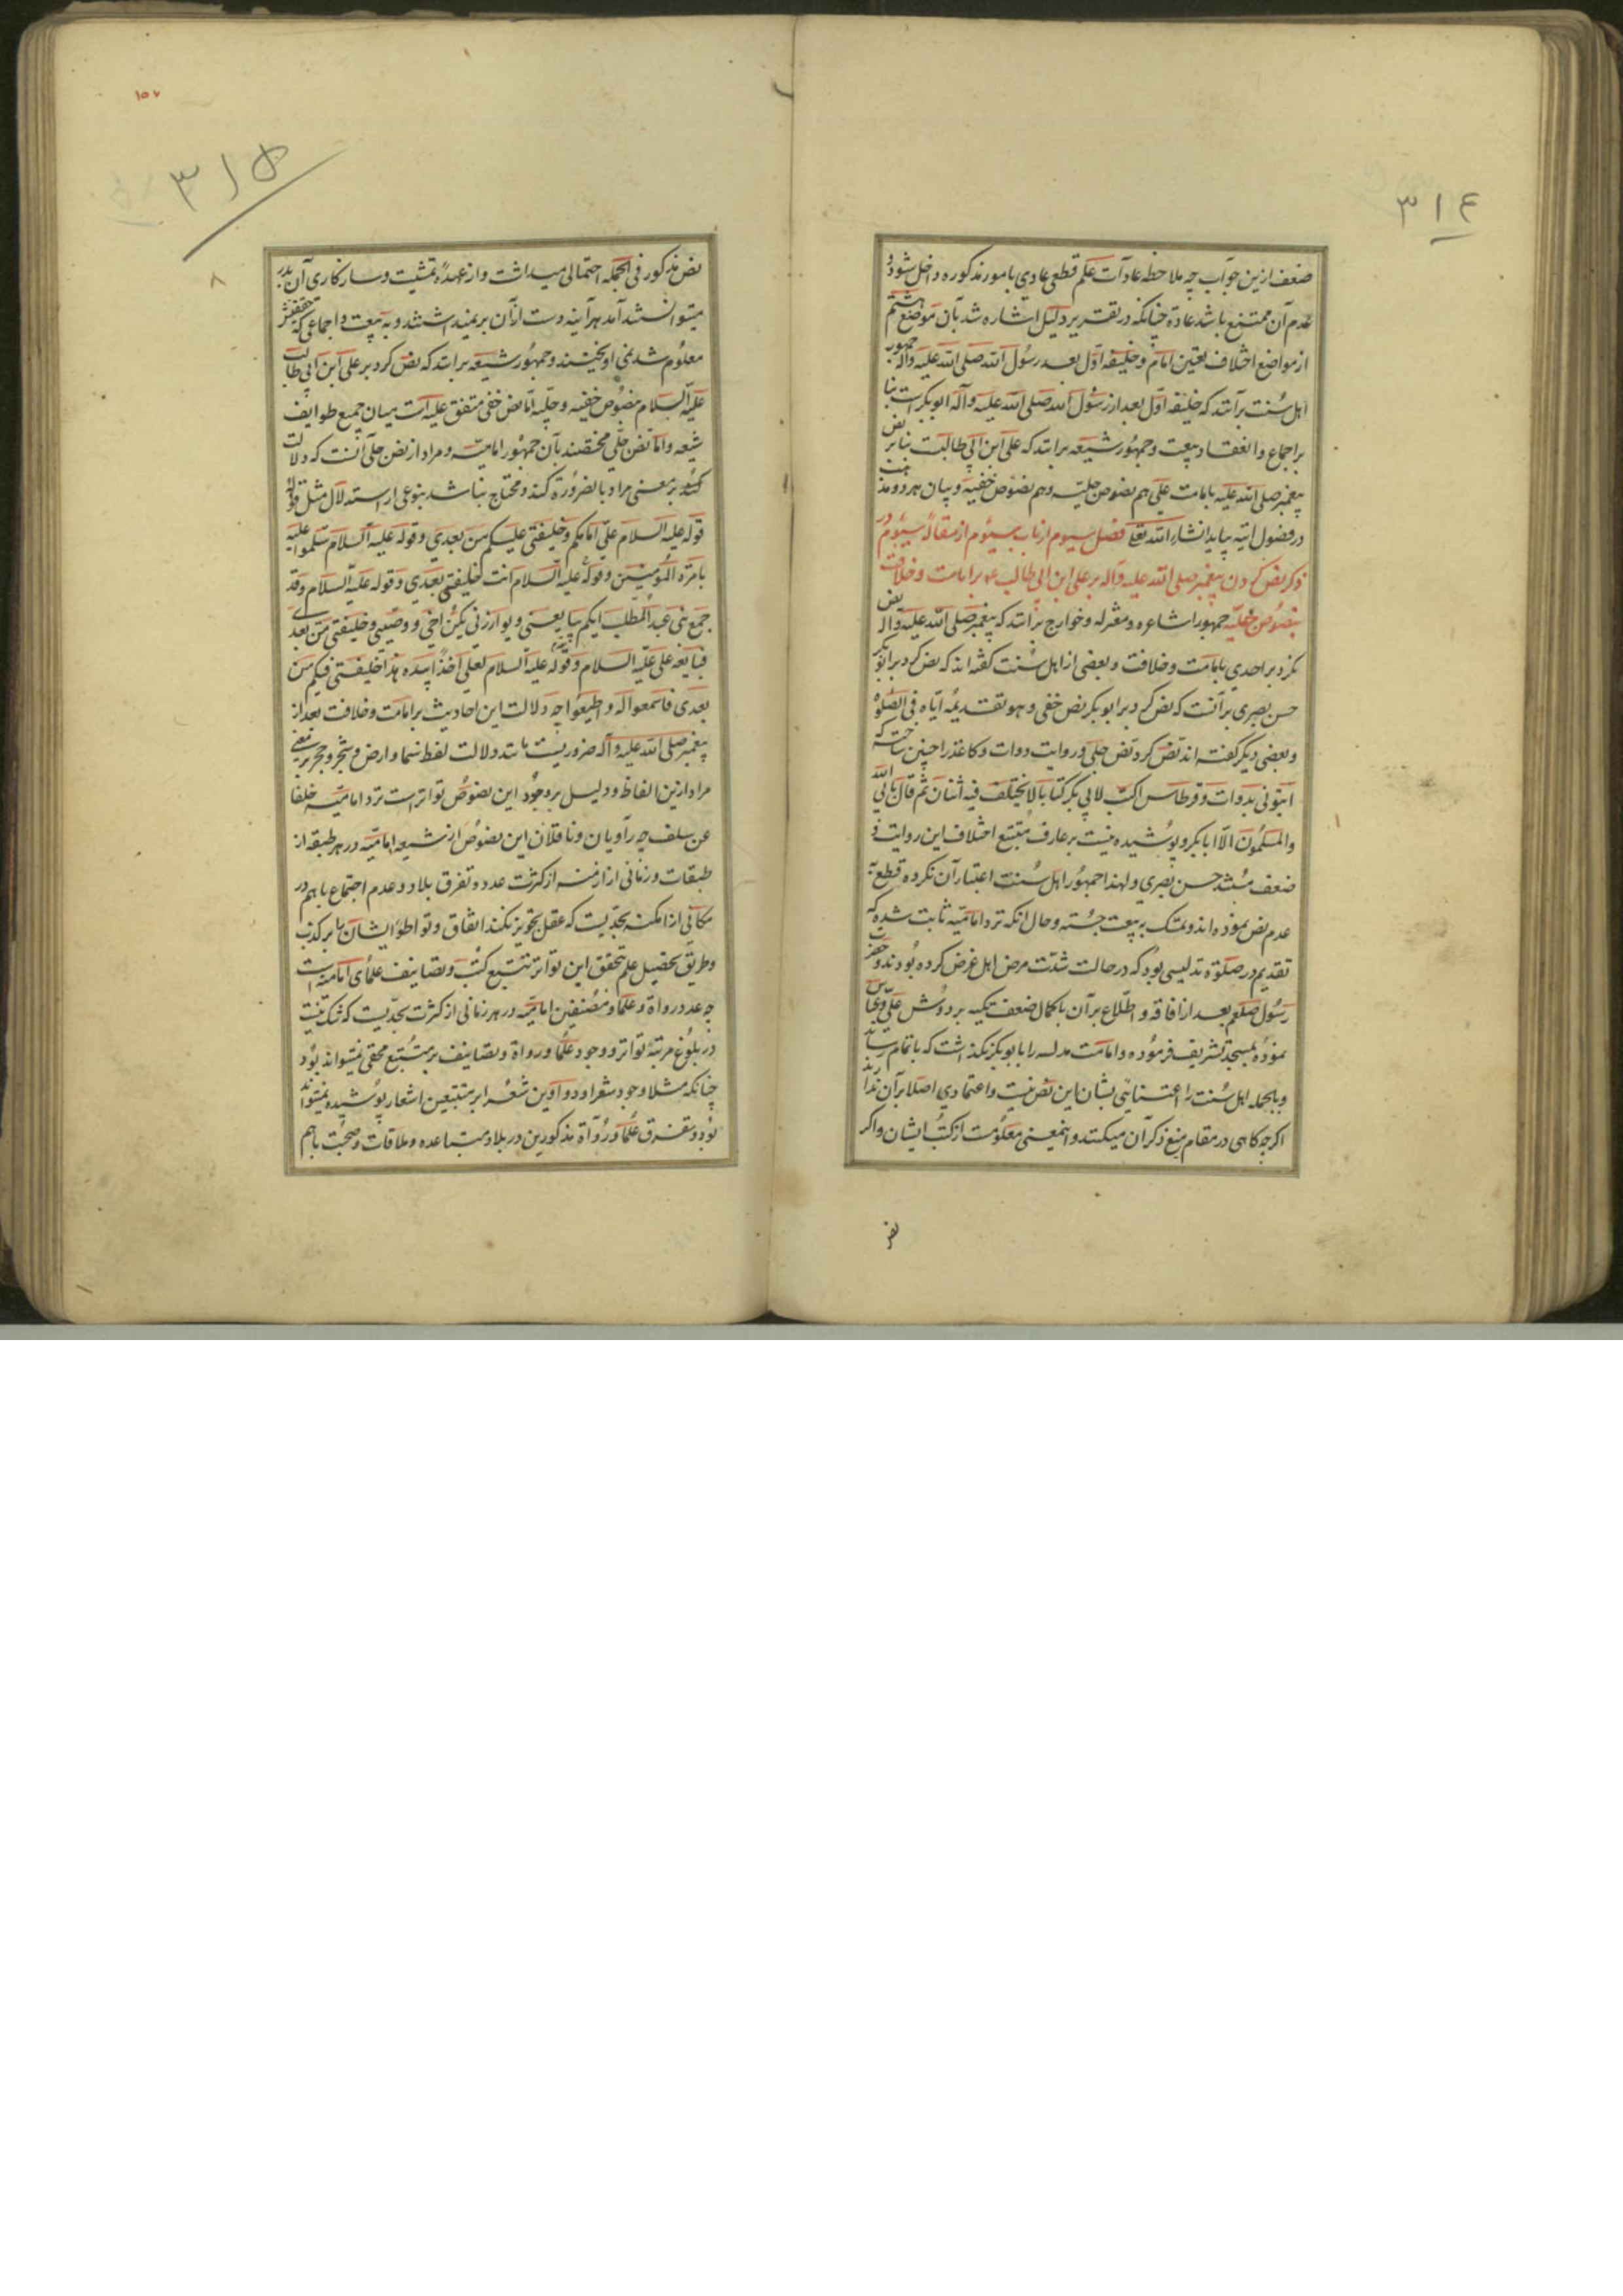 ۳۱۴
ضعف ازین جواب چه ملاحظه عادات علم قطعی عادی بامور مذکوره داخل شود و
عدم آن ممتنع باشد عادة چنانکه در تقریر دلیل اشاره شد بآن موضع هشتم
از مواضع اختلاف تعیین امام و خلیفه اول بعد رسول الله صلی الله علیه وآله جمهور
اهل سنت برآنند که خلیفه اول بعد از رسول الله صلی الله علیه وآله ابوبکر است بنا
بر اجماع و انعقاد بیعت و جمهور شیعه برانند که علی ابن ابی طالبست بنابر نص
پیغمبر صلی الله علیه بامامت علی هم بنصوص جلیه و هم بنصوص خفیه و بیان هر دو مذهب
در فصول اتیه بیاید انشاء الله تعالی فصل سیوم از باب سیوم از مقاله سیوم در
ذکر نص کردن پیغمبر صلی الله علیه وآله بر علی ابن ابی طالب ع بر امامت و خلافت
بنصوص جلیه جمهور اشاعره و معتزله و خوارج برانند که پیغمبر صلی الله علیه وآله نص
نکرد بر احدی بامامت و خلافت و بعضی از اهل سنت گفته اند که نص کرد بر ابوبکر
حسن بصری برآنست که نص کرد بر ابوبکر نص خفی و هو تقدیمه ایاه فی الصلوة
و بعضی دیگر گفته اند نص کرد نص جلی و روایت دوات و کاغذ را چنین ساخته که
ایتونی بدوات و قرطاس اکتب لابی بکر کتابا لا یختلف فیه اثنان ثم قال یابی الله
والمسلمون الا ابابکر و پوشیده نیست بر عارف متتبع اختلاف این روایت و
ضعف مسند حسن بصری و لهذا جمهور اهل سنت اعتبار آن نکرده قطع به
عدم نص نموده اند و تمسک به بیعت جسته و حال انکه نزد امامیه ثابت شده که
تقدیم در صلوة تدلیسی بود که در حالت شدت مرض اهل غرض کرده بودند و حضرت
رسول صلعم بعد از افاقه و اطلاع بر آن با کمال ضعف تکیه بر دوش علی و عباس
نموده بمسجد تشریف فرموده و امامت مدلسه را بابوبکر نگذاشت که باتمام رساند
و بالجمله اهل سنت را اعتنایی بشان این نص نیست و اعتمادی اصلا بر آن ندارند
اگرچه کاهی در مقام منع ذکر آن میکنند و اینمعنی معلومست از کتب ایشان و اگر
نص
۱۵۷
۳۱۵
نص مذکور فی الجمله احتمالی میداشت و از عهده تمشیت و سازکاری آن بدر
میتوانستند آمد هر آینه دست از آن بر نمیداشتند و به بیعت و اجماعی که حقیقتش
معلوم شد نمی اویختند و جمهور شیعه برانند که نص کرد بر علی ابن ابی طالب
علیه السلام بنصوص خفیه و جلیه اما نص خفی متفق علیه است میان جمیع طوایف
شیعه و اما نص جلی مختصند بآن جمهور امامیه و مراد از نص جلی آنست که دلالت
کند بر معنی مراد بالضرورة کند و محتاج نباشد بنوعی از استدلال مثل قوله
قوله علیه السلام علی امامکم و خلیفتی علیکم من بعدی و قوله علیه السلام سلموا علیه
بامرة المؤمنین و قوله علیه السلام انت خلیفتی بعدی و قوله علیه السلام وقد
جمع بنی عبد المطلب ایکم یبایعنی و یوارزنی یکن اخی و وصیی و خلیفتی من بعدی
فبایعه علی علیه السلام و قوله علیه السلام لعلی اخذا بیده هذا خلیفتی فیکم من
بعدی فاسمعوا له و اطیعوا چه دلالت این احادیث بر امامت و خلافت بعد از
پیغمبر صلی الله علیه وآله ضروریست مانند دلالت لفظ سما و ارض و شجر و حجر بر معنی
مراد ازین الفاظ و دلیل بر وجود این نصوص تواتر است نزد امامیه خلفا
عن سلف چه رآویان و ناقلان این نصوص از شیعه امامیه در هر طبقه از
طبقات و زمانی از ازمنه از کثرت عدد و تفرق بلاد و عدم اجتماع باهم در
مکانی از امکنه بحدیست که عقل تجویز نکند اتفاق و تواطؤ ایشان را بر کذب
و طریق تحصیل علم بتحقق این تواتر تتبع کتب و تصانیف علمای امامیه است
چه عدد رواة و علما و مصنفین امامیه در هر زمانی از کثرت بحدیست که شک نیست
در بلوغ مرتبه تواتر و وجود علما و رواة و تصانیف بر متتبع مخفی نمیتواند بود
چنانکه مثلا وجود شعرا و دواوین شعرا بر متتبعین اشعار پوشیده نمیتواند
بود و تفرق علما و رواة مذکورین در بلاد متباعده و ملاقات و صحبت باهم